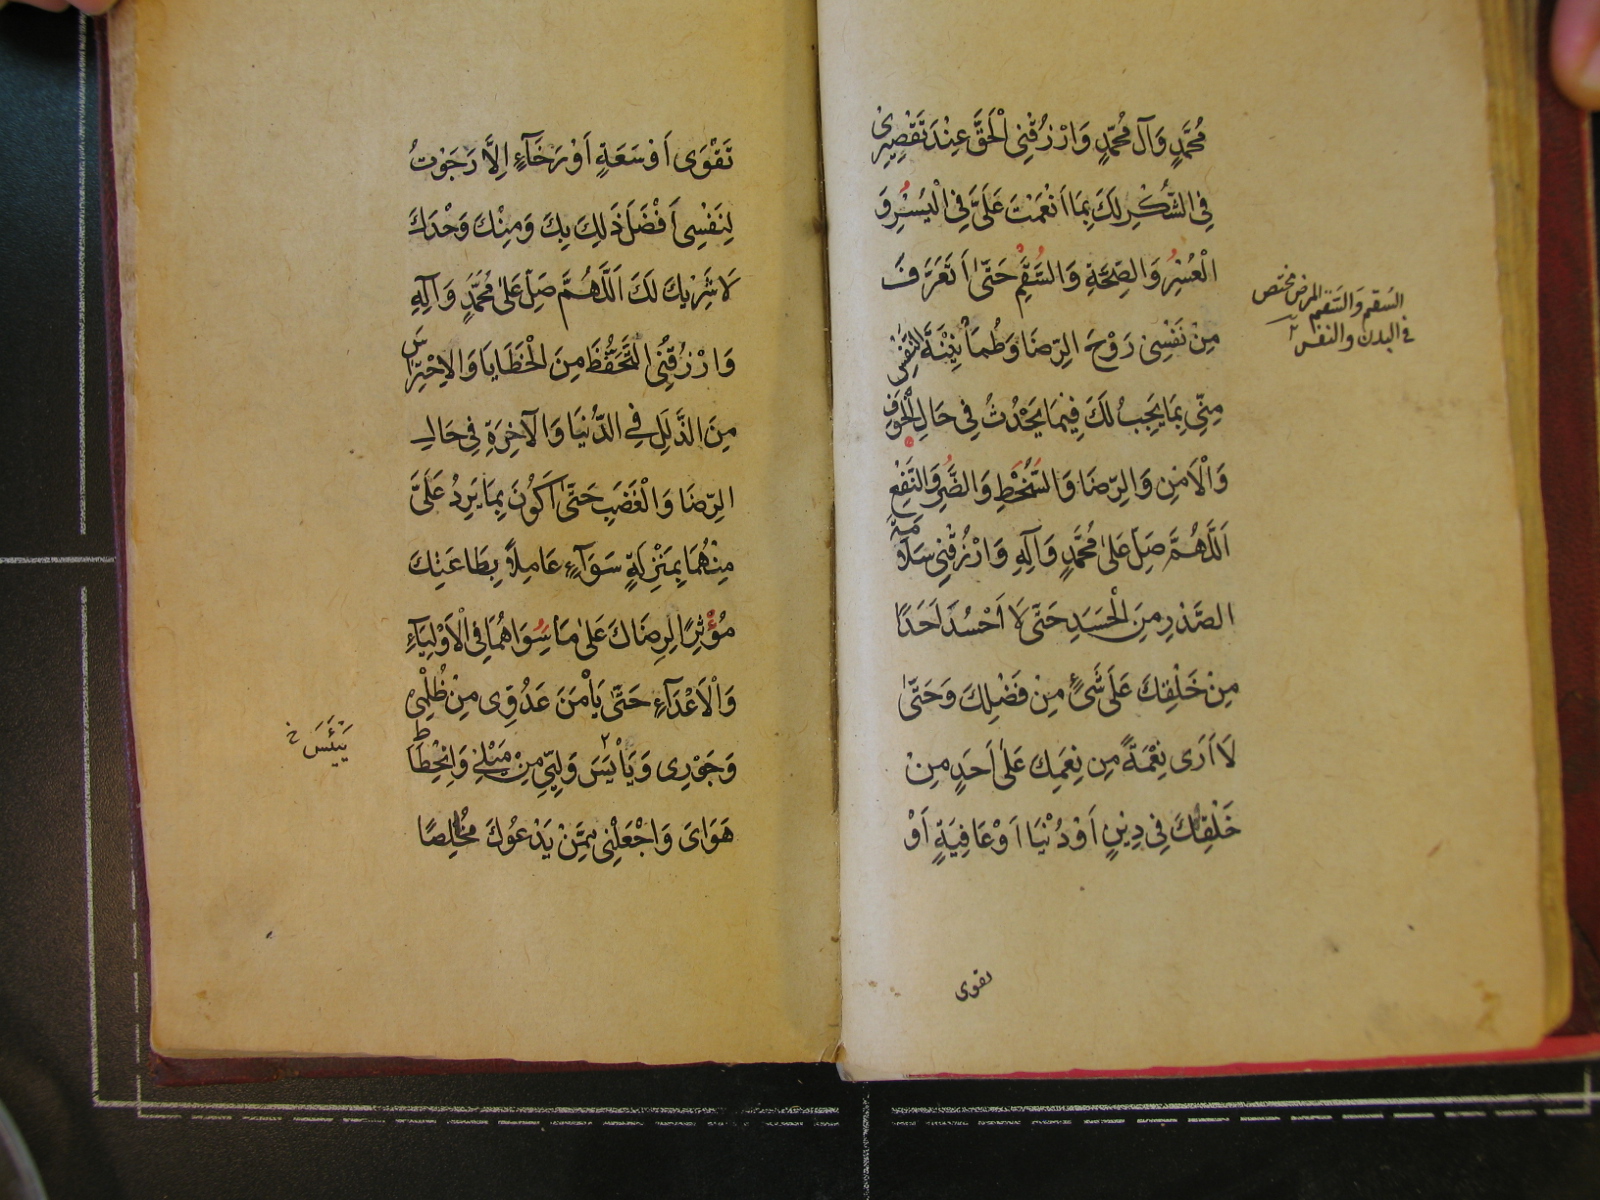 مُحَمَّدٍ وَآلِ مُحَمَّدٍ وَارْزُقْنِى الْحَقَّ عِنْدَ تَقْصِيرِى
فِى الشُّكْرِ لَكَ بِمَا اَنْعَمْتَ عَلَىَّ فِى الْيُسْرِ وَ
الْعُسْرِ وَالصِّحَّةِ وَالسُّقْمِ حَتّٰى اَتَعَرَّفَ
مِنْ نَفْسِى رَوْحَ الرِّضَا وَطُمَاْنِيْنَةَ النَّفْسِ
مِنِّى بِمَا يَجِبُ لَكَ فِيْمَا يَحْدُثُ فِى حَالِ الْخَوْفِ
وَالْاَمْنِ وَالرِّضَا وَالسُّخْطِ وَالضَّرِّ وَالنَّفْعِ
اَللّٰهُمَّ صَلِّ عَلٰى مُحَمَّدٍ وَآلِهِ وَارْزُقْنِى سَلَامَةَ
الصَّدْرِ مِنَ الْحَسَدِ حَتّٰى لَا اَحْسُدَ اَحَدًا
مِنْ خَلْقِكَ عَلٰى شَىْءٍ مِنْ فَضْلِكَ وَحَتّٰى
لَا اَرَى نِعْمَةً مِنْ نِعَمِكَ عَلٰى اَحَدٍ مِنْ
خَلْقِكَ فِى دِيْنٍ اَوْ دُنْيَا اَوْ عَافِيَةٍ اَوْ
تقوى
السقم والسَقَم المرض مختص
فى البدن والنفس
تَقْوَى اَوْ سَعَةٍ اَوْ رَخَآءٍ اِلَّا رَجَوْتُ
لِنَفْسِى اَفْضَلَ ذٰلِكَ بِكَ وَمِنْكَ وَحْدَكَ
لَا شَرِيْكَ لَكَ اَللّٰهُمَّ صَلِّ عَلٰى مُحَمَّدٍ وَآلِهِ
وَارْزُقْنِى التَّحَفُّظَ مِنَ الْخَطَايَا وَالْاِحْتِرَاسَ
مِنَ الزَّلَلِ فِى الدُّنْيَا وَالْآخِرَةِ فِى حَالِ
الرِّضَا وَالْغَضَبِ حَتّٰى اَكُوْنَ بِمَا يَرِدُ عَلَىَّ
مِنْهُمَا بِمَنْزِلَةٍ سَوَآءٍ عَامِلًا بِطَاعَتِكَ
مُؤْثِرًا لِرِضَاكَ عَلٰى مَا سِوَاهُمَا فِى الْاَوْلِيَآءِ
وَالْاَعْدَآءِ حَتّٰى يَاْمَنَ عَدُوِّى مِنْ ظُلْمِى
وَجَوْرِى وَيَاْيَسَ وَلِيِّى مِنْ مَيْلِى وَانْحِطَاطِ
هَوَاىَ وَاجْعَلْنِى مِمَّنْ يَدْعُوْكَ مُخْلِصًا
يَيْئَسَ خ